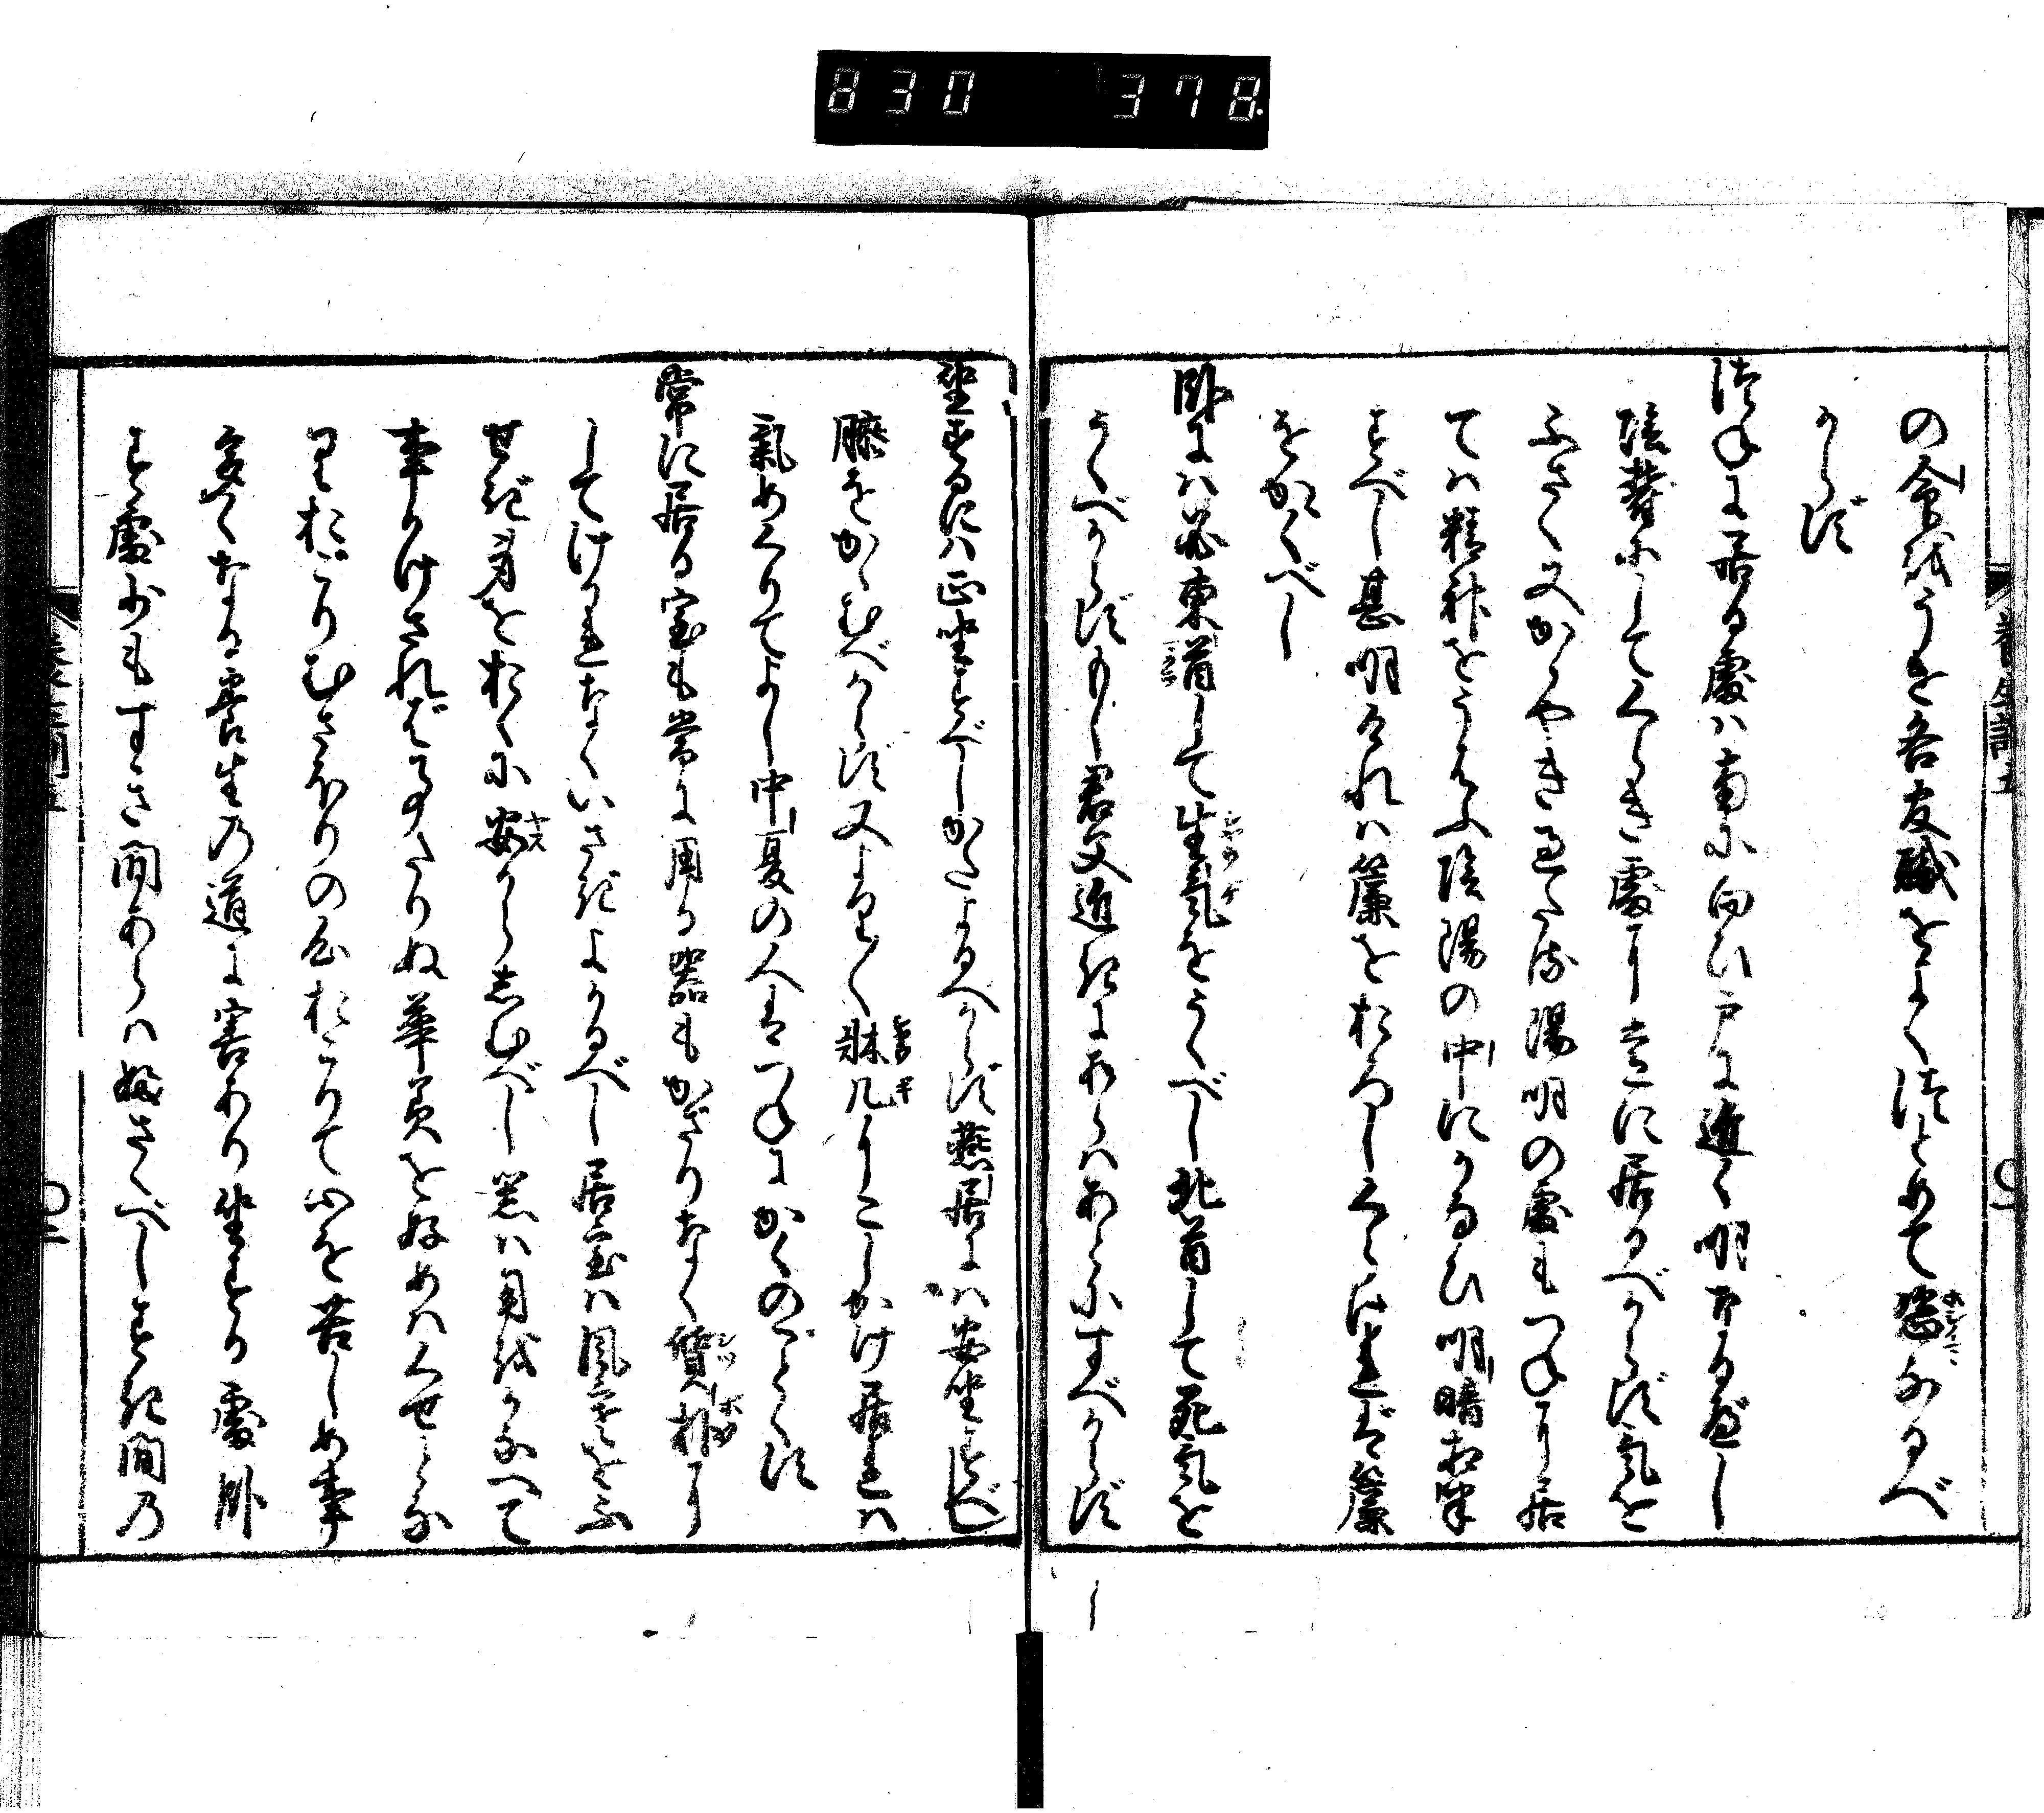 830 378
の令をうけ各官職をよくつとめて恣なるべ
からず
つねに居る處ハ南に向ひ戸に近く明なるべし
陰鬱にしてくらき處に常に居るべからず氣を
ふさぐ又かゞやき過たる陽明の處もつねに居
てハ精神をうばふ陰陽の中にかなひ明暗相半
すべし甚明なれハ簾をおろしくらけれバ簾
をかゝぐべし
臥にハ必東首して生氣をうくべし北首して死氣を
うくべからずもし君父近きにあらハあとにすべからず
坐するにハ正坐すべしかたよるべからず燕居にハ安坐すべし
膝をかゞむべからず又より〱牀几にこしかけ居れハ
氣めくりてよし中夏の人ハつねにかくのごとくす
常に居る室も常に用る器もかざりなく質朴に
してけがれなくいさぎよかるべし居室ハ風寒をふ
せぎ身をおくに安からしむべし器ハ用をかなへて
事かけざれバ事たりぬ華美を好めハくせとな
りおごりむさぼりの心おこりて心を苦しめ事
多くなる養生の道に害あり坐する處臥
す處少もすき間あらハふさくべしすき間の